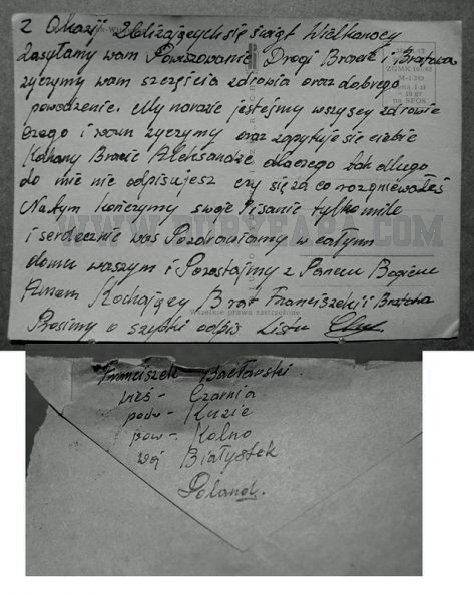 Z Okazji Zbliżających się Świąt Wielkanocy
Zasyłamy wam Powinszowanie Drogi Bracie i Bratowa
życzymy wam szczęścia zdrowia oraz dobrego
powodzenie. My narazie jesteśmy wszyscy zdrowie
czego i wam życzymy oraz zapytuje się ciebie
Kohany Bracie Aleksandrze dlaczego tak długo
do mie nie odpisujesz czy się za co rozgniewałeś
Na tym kończymy swoje Pisanie tylko mile
i serdecznie was Pozdrawiamy w całym
domu waszym i Pozostajmy z Panem Bogiem
Amen Kochający Brat Franciszek i Bratowa
Prosimy o szybki odpis Listu
Wszelkie prawa zastrzeżone
Franciszek
wieś - Czarnia
pocz - Kuzie
pow - Kolno
woj Białystok
Poland.